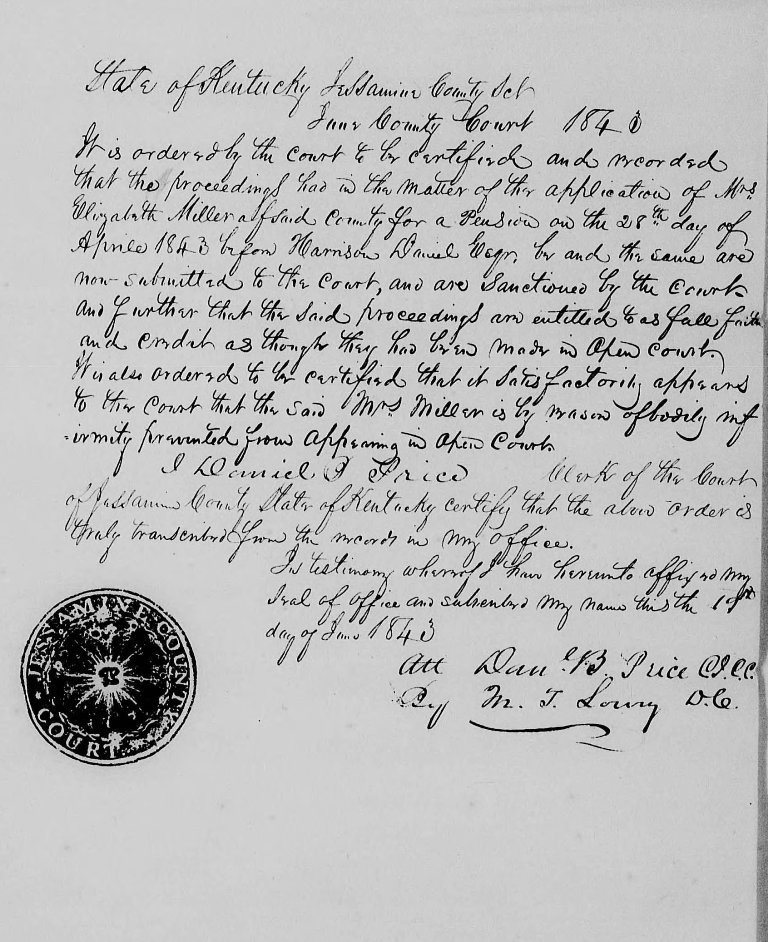 State of Kentucky Jessamine County Sct
June County Court 1843
It is ordered by the court to be certified and recorded
that the proceedings had in the matter of the application of Mrs.
Elizabeth Miller of said county for a Pension on the 28th day of
Aprile 1843 before Harrison Daniel Esqr, be and the same are
now submitted to the Court, and are Sanctioned by the court
and further that the said proceedings are entitled to as full faith
and credit as though they had been made in Open court.
It is also ordered to be certified that it Satisfactorily appears
to the Court that the said Mrs Miller is by reason of bodily inf
=irmity prevented from appearing in Open Court.
I Daniel B Price Clerk of the Court
of Jessamine County State of Kentucky certify that the above order is
truly transcribed from the records in my office.
In testimony whereof I have hereunto affixed my
Seal of Office and subscribed my name this the 19th
day of June 1843
Att Danl B. Price C.J.C.C.
By M. T. Lowry D.C.
JESSAMINE COUNTY
COURT